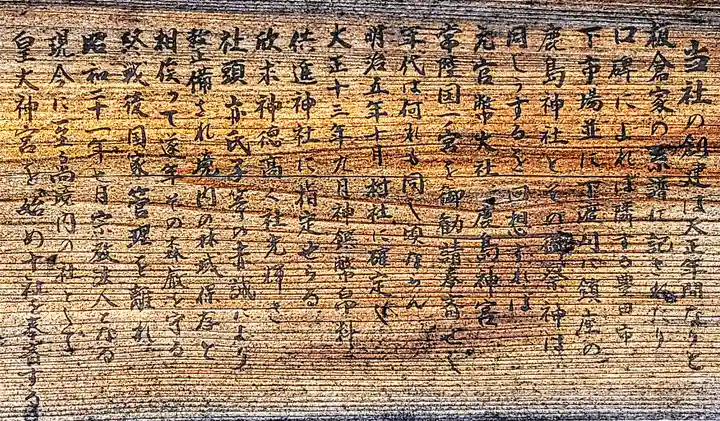 当社の創建は大正年間なりと
板倉家の系譜に記されたり
口碑によれば隣する豊田市
下市場並に下渡刈に鎮座の
鹿島神社とその御祭神は
同じうするを回想すれば
元官幣大社 鹿島神宮
常陸国一宮を御勧請奉斎せし
年代は何れも同じ頃ならん
明治五年十月村社に確定し
大正十三年九月神饌幣帛料
供進神社に指定せらる
欣求神徳高く社光輝き
社頭亦氏子等の青誠により
整備され境内の林域保存と
相俟って逐年その森厳を守る
終戦後国家管理を離れ
昭和二十一年七月宗教法人となる
現今に至る境内の社として
皇大神宮を始め十社を奉斎する